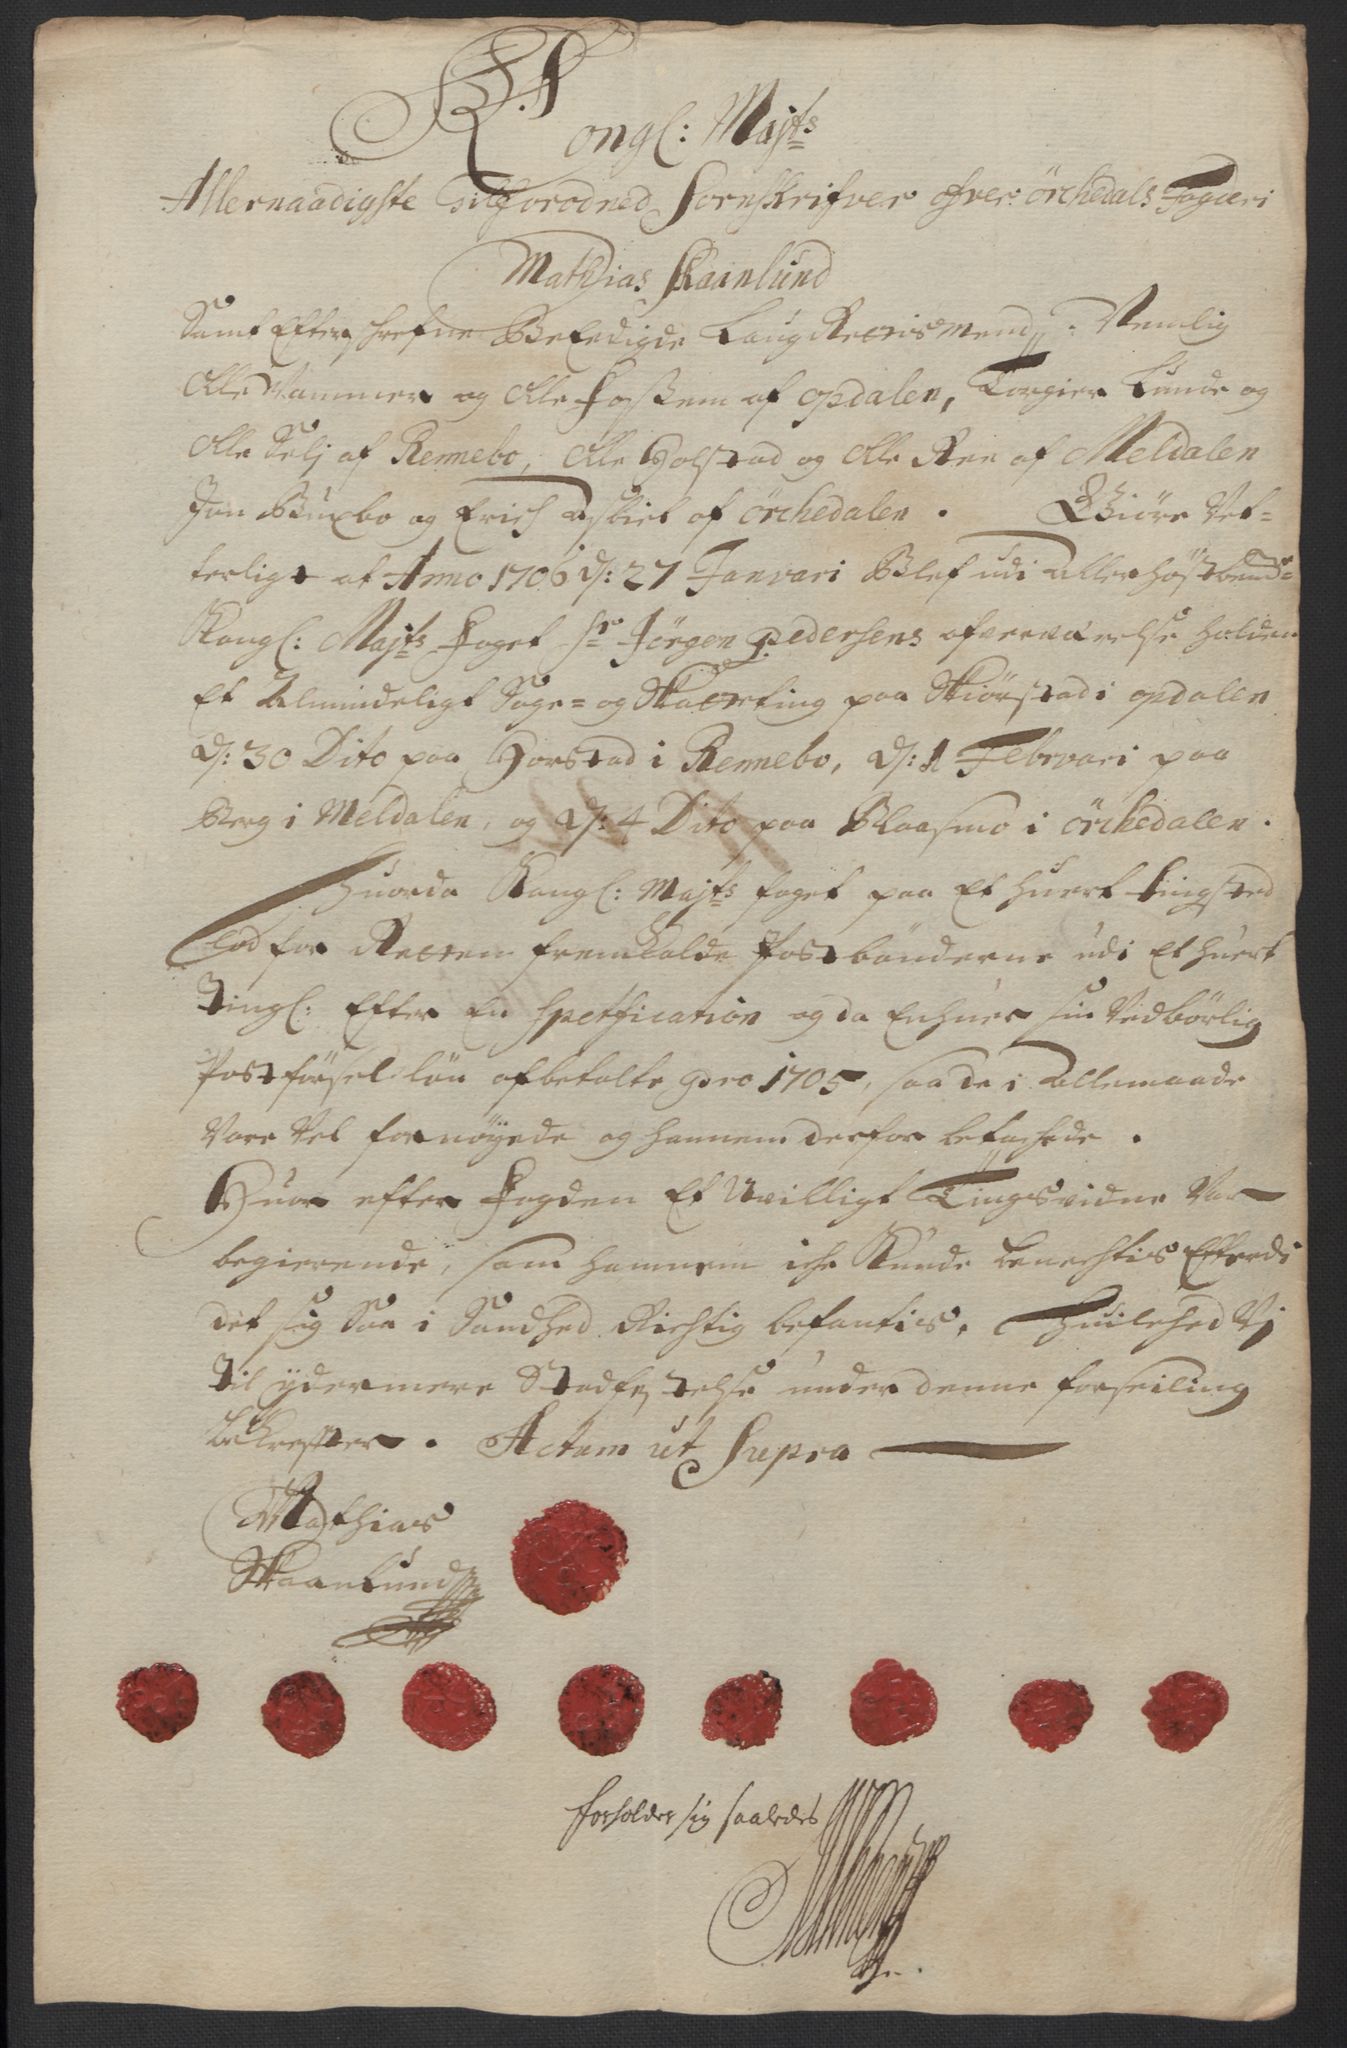 Kongl: Majts
Allernaadigste Tilforodned Sornskrifver ofver örchedals Fogderi
Mathias Skaanlund
Samt Efterschrefne Beeedigde Laug Rettis mend, Nemlig
Olle Vammer og Olle Fossem af opdalen, Torgier Lunde og
Olle Selj af Rennebo, Olle Holstad og Olle Ree af Meldalen
Jon Buxbo og Erich Asbiet af örchedalen. Giöre Vet-
terligt at Anno 1706 d: 27 Janvari Blef udi aller höstbemte
Kongl: Majts Foget Sr Jörgen Pedersens ofverværelse holden
Et Almindeligt Sage- og Skatteting paa Skiörstad i opdalen
d: 30 Dito paa Horstad i Rennebo, d: 1 Februari paa
Berg i Meldalen, og d: 4 Dito paa Blaasmo i örchedalen.
Huorda Kongl: Majts foget paa Et huert tingsted
lod for Retten fremkalde Postbönderne udi Et huert
Tingl: Efter En Spetfication og da Enhuer sin Vedbörlig
Postförsel lön afbetalte pro 1705, saa de i allemaade
Vare Vel fornöyede og hannem derfor betachede.
Huor efter Fogden Et Uvilligt Tingsvidne Var
begierende, som hannem iche Kunde benechtis Efterdi
det sig Saa i Sandhed Richtig befantis, Huilched Vj
til ydermere Stadfestelse under denne forseiling
bekrefter. Actum ut Supra
Mathias
Skaanlund
forholder sig saaledes